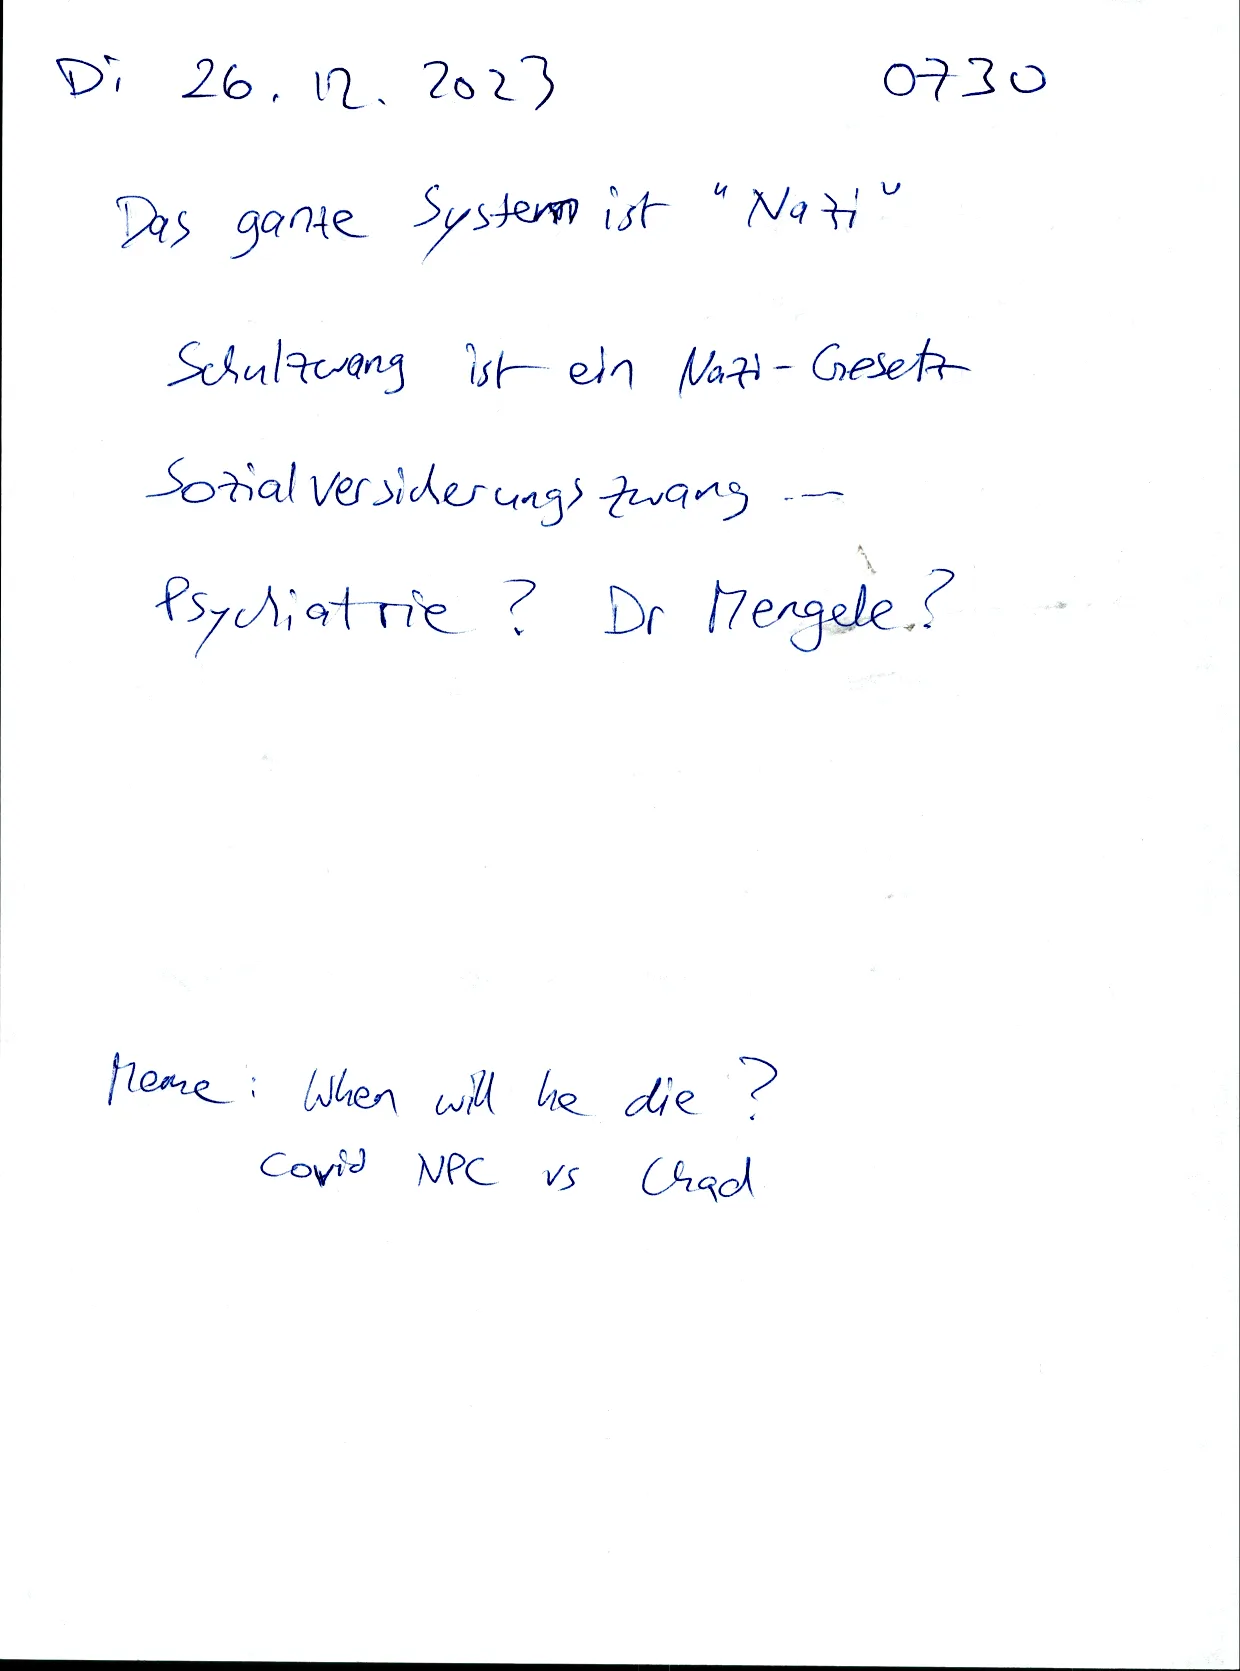 Di 26.12.2023 0730
Das ganze System ist "Nazi"
Schulzwang ist ein Nazi-Gesetz
Sozialversicherungszwang ...
Psychiatrie? Dr Mengele?
Meme: When will he die?
Covid NPC vs Chad